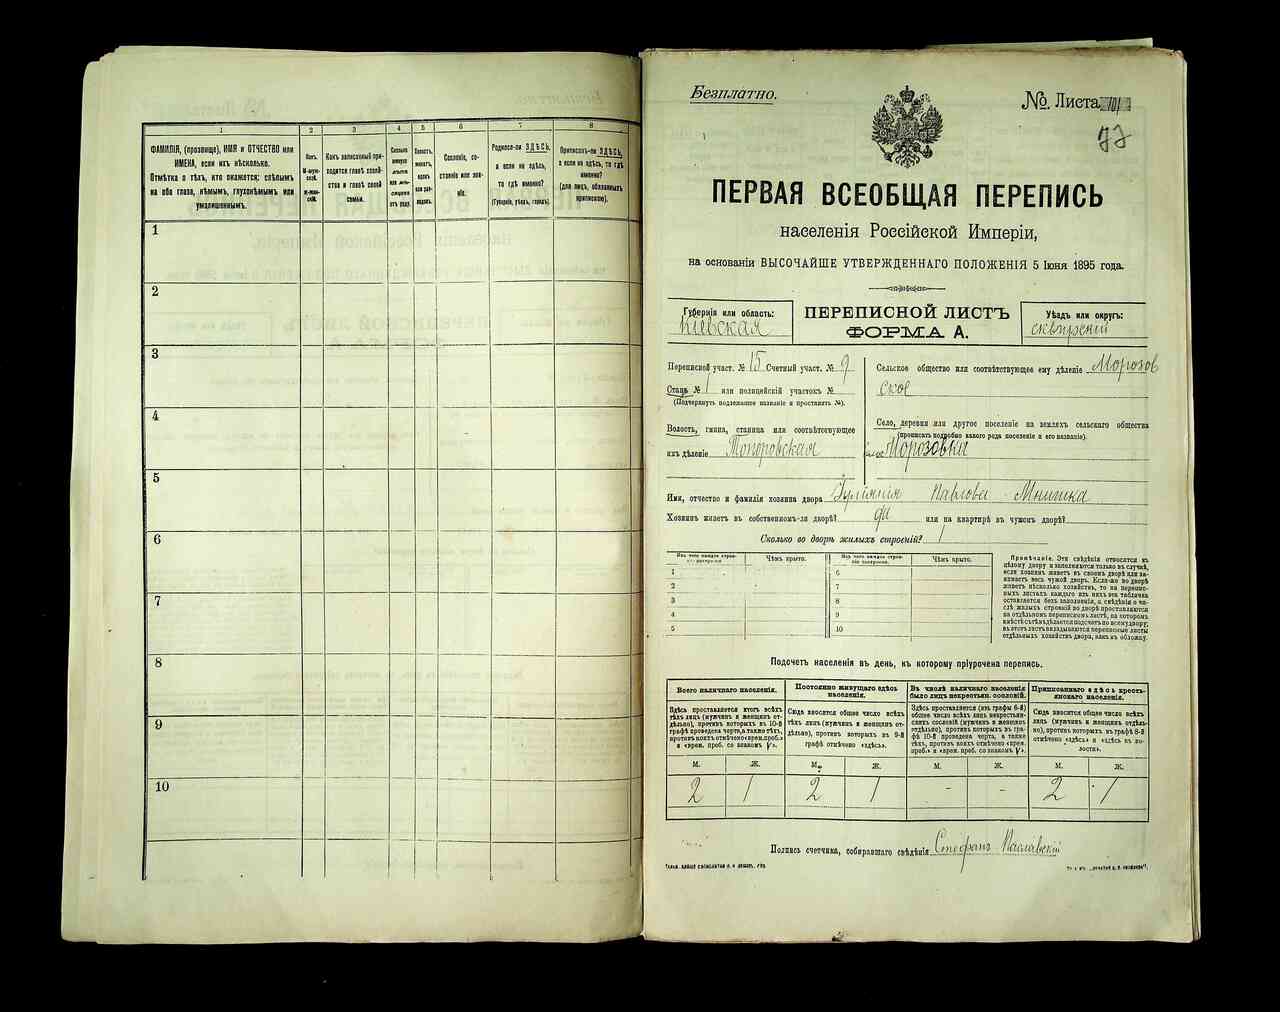 1 2 3 4 5 6 7 8
ФАМИЛІЯ, (прозвище), ИМЯ и ОТЧЕСТВО или
ИМЕНА, если ихъ нѣсколько.
Отмѣтка о тѣхъ, кто окажется: слѣпымъ
на оба глаза, нѣмымъ, глухонѣмымъ или
умалишеннымъ.
Какъ записанный при-
ходится главѣ хозяй-
ства и главѣ своей
семьи.
Сословіе, со-
стояніе или зва-
ніе.
Родился-ли ЗДѢСЬ,
а если не здѣсь,
то гдѣ именно?
(Губернія, уѣздъ, городъ).
Приписанъ-ли ЗДѢСЬ,
а если не здѣсь, то гдѣ
именно?
(для лицъ, обязанныхъ
припискою).
1
2
3
4
5
6
7
8
9
10
Безплатно.
№ Листа 101
ПЕРВАЯ ВСЕОБЩАЯ ПЕРЕПИСЬ
населенія Россійской Имперіи,
на основаніи ВЫСОЧАЙШЕ УТВЕРЖДЕННАГО ПОЛОЖЕНІЯ 5 Іюня 1895 года.
Губернія или область:
Кіевская
ПЕРЕПИСНОЙ ЛИСТЪ
ФОРМА А.
Уѣздъ или округъ:
Сквирскій
Переписной участ. № 15 Счетный участ. № 9
Станъ № 1 или полицейскій участокъ №
(Подчеркнуть подлежащее названіе и проставить №).
Волость, гмина, станица или соотвѣтствующее
ихъ дѣленіе Топоровская
Сельское общество или соотвѣтствующее ему дѣленіе Морозов
ское
Село, деревня или другое поселеніе на земляхъ сельскаго общества
(прописать подробно какого рода поселеніе и его названіе).
Морозовка
Имя, отчество и фамилія хозяина двора Павлова
Хозяинъ живетъ въ собственномъ-ли дворѣ? да или на квартирѣ въ чужомъ дворѣ?
Сколько во дворѣ жилыхъ строеній? 1
Изъ чего каждое строе-
ніе построено.
Чѣмъ крыто.
Изъ чего каждое строе-
ніе построено.
Чѣмъ крыто.
1 6
2 7
3 8
4 9
5 10
Примѣчаніе. Эти свѣдѣнія относятся къ
цѣлому двору и заполняются только въ случаѣ,
если хозяинъ живетъ въ своемъ дворѣ или за-
нимаетъ весь чужой дворъ. Если-же во дворѣ
живетъ нѣсколько хозяйствъ, то на перепис-
ныхъ листахъ каждаго изъ нихъ эта табличка
оставляется безъ заполненія, а свѣдѣнія о чи-
слѣ жилыхъ строеній во дворѣ проставляются
на отдѣльномъ переписномъ листѣ, на которомъ
вмѣстѣ съ тѣмъ дѣлается подсчетъ по всему двору;
въ этотъ листъ вкладываются переписные листы
отдѣльныхъ хозяйствъ двора, какъ въ обложку.
Подсчетъ населенія въ день, къ которому пріурочена перепись.
Всего наличнаго населенія.
Здѣсь проставляется итогъ всѣхъ
тѣхъ лицъ (мужчинъ и женщинъ от-
дѣльно), противъ которыхъ въ 10-й
графѣ проведена черта, а также тѣхъ,
противъ коихъ отмѣчено «врем. проб.»
и «врем. проб. со знакомъ V».
Постоянно живущаго здѣсь
населенія.
Сюда вносится общее число всѣхъ
тѣхъ лицъ (мужчинъ и женщинъ от-
дѣльно), противъ которыхъ въ 9-й
графѣ отмѣчено «здѣсь».
Въ числѣ наличнаго населенія
было лицъ некрестьян. сословій.
Здѣсь проставляется (изъ графы 6-й)
общее число всѣхъ лицъ некрестьян-
скихъ сословій (мужчинъ и женщинъ
отдѣльно), противъ которыхъ въ гра-
фѣ 10-й проведена черта, а также
тѣхъ, противъ коихъ отмѣчено «врем.
проб.» и «врем. проб. со знакомъ V».
Приписаннаго здѣсь кресть-
янскаго населенія.
Сюда вносится общее число всѣхъ
лицъ (мужчинъ и женщинъ отдѣль-
но), противъ которыхъ въ графѣ 8-й
отмѣчено «здѣсь» и «здѣсь въ во-
лости».
М. Ж. М. Ж. М. Ж. М. Ж.
2 1 2 1 - - 2 1
Подпись счетчика, собиравшаго свѣдѣнія Стефанъ Паславскій